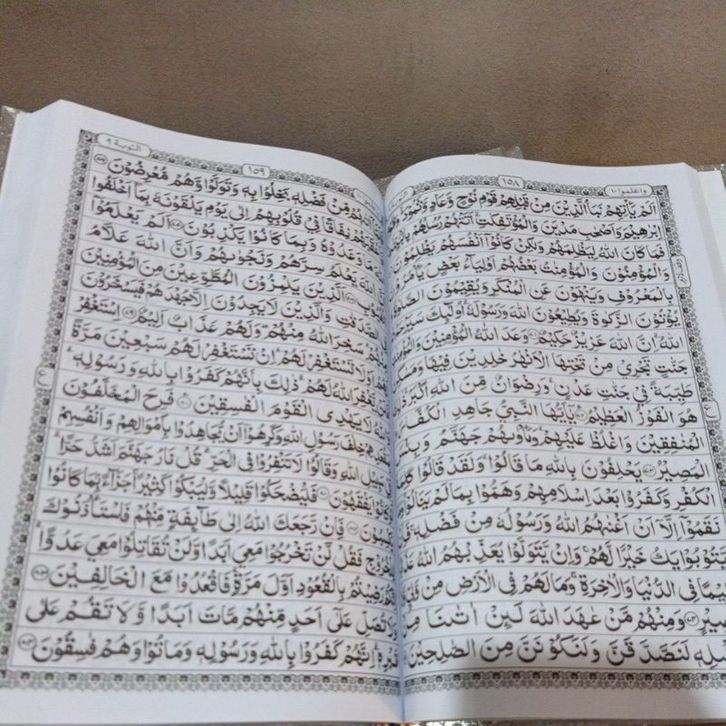 واعلموا ١٠
١٥٨
اَلَمْ يَأْتِهِمْ نَبَاُ الَّذِيْنَ مِنْ قَبْلِهِمْ قَوْمِ نُوْحٍ وَّعَادٍ وَّثَمُوْدَ
اِبْرٰهِيْمَ وَاَصْحٰبِ مَدْيَنَ وَالْمُؤْتَفِكٰتِ اَتَتْهُمْ رُسُلُهُمْ
فَمَا كَانَ اللّٰهُ لِيَظْلِمَهُمْ وَلٰكِنْ كَانُوْٓا اَنْفُسَهُمْ يَظْلِمُوْنَ
وَالْمُؤْمِنُوْنَ وَالْمُؤْمِنٰتُ بَعْضُهُمْ اَوْلِيَآءُ بَعْضٍ
بِالْمَعْرُوْفِ وَيَنْهَوْنَ عَنِ الْمُنْكَرِ وَيُقِيْمُوْنَ
يُؤْتُوْنَ الزَّكٰوةَ وَيُطِيْعُوْنَ اللّٰهَ وَرَسُوْلَهٗ اُولٰٓئِكَ
اللّٰهُ اِنَّ اللّٰهَ عَزِيْزٌ حَكِيْمٌ وَعَدَ اللّٰهُ الْمُؤْمِنِيْنَ
جَنّٰتٍ تَجْرِيْ مِنْ تَحْتِهَا الْاَنْهٰرُ خٰلِدِيْنَ فِيْهَا
طَيِّبَةً فِيْ جَنّٰتِ عَدْنٍ وَرِضْوَانٌ مِّنَ اللّٰهِ اَكْبَرُ
هُوَ الْفَوْزُ الْعَظِيْمُ يٰٓاَيُّهَا النَّبِيُّ جَاهِدِ
الْمُنٰفِقِيْنَ وَاغْلُظْ عَلَيْهِمْ وَمَأْوٰىهُمْ جَهَنَّمُ
الْمَصِيْرُ يَحْلِفُوْنَ بِاللّٰهِ مَا قَالُوْا وَلَقَدْ قَالُوْا
الْكُفْرِ وَكَفَرُوْا بَعْدَ اِسْلَامِهِمْ وَهَمُّوْا بِمَا لَمْ يَنَالُوْا
نَقَمُوْٓا اِلَّآ اَنْ اَغْنٰىهُمُ اللّٰهُ وَرَسُوْلُهٗ مِنْ فَضْلِهٖ
يَّتُوْبُوْا يَكُ خَيْرًا لَّهُمْ وَاِنْ يَّتَوَلَّوْا يُعَذِّبْهُمُ اللّٰهُ
فِى الدُّنْيَا وَالْاٰخِرَةِ وَمَا لَهُمْ فِى الْاَرْضِ مِنْ
وَمِنْهُمْ مَّنْ عٰهَدَ اللّٰهَ لَئِنْ اٰتٰىنَا
لَنَصَّدَّقَنَّ وَلَنَكُوْنَنَّ مِنَ الصّٰلِحِيْنَ
١٥٩
التوبة ٩
مِّنْ فَضْلِهٖ بَخِلُوْا بِهٖ وَتَوَلَّوْا وَّهُمْ مُّعْرِضُوْنَ
نِفَاقًا فِيْ قُلُوْبِهِمْ اِلٰى يَوْمِ يَلْقَوْنَهٗ بِمَآ اَخْلَفُوا
مَا وَعَدُوْهُ وَبِمَا كَانُوْا يَكْذِبُوْنَ اَلَمْ يَعْلَمُوْٓا
اللّٰهَ يَعْلَمُ سِرَّهُمْ وَنَجْوٰىهُمْ وَاَنَّ اللّٰهَ عَلَّامُ
اَلَّذِيْنَ يَلْمِزُوْنَ الْمُطَّوِّعِيْنَ مِنَ الْمُؤْمِنِيْنَ
وَالَّذِيْنَ لَا يَجِدُوْنَ اِلَّا جُهْدَهُمْ فَيَسْخَرُوْنَ
سَخِرَ اللّٰهُ مِنْهُمْ وَلَهُمْ عَذَابٌ اَلِيْمٌ اِسْتَغْفِرْ
لَا تَسْتَغْفِرْ لَهُمْ اِنْ تَسْتَغْفِرْ لَهُمْ سَبْعِيْنَ مَرَّةً
يَّغْفِرَ اللّٰهُ لَهُمْ ذٰلِكَ بِاَنَّهُمْ كَفَرُوْا بِاللّٰهِ وَرَسُوْلِهٖ
لَا يَهْدِى الْقَوْمَ الْفٰسِقِيْنَ فَرِحَ الْمُخَلَّفُوْنَ
خِلٰفَ رَسُوْلِ اللّٰهِ وَكَرِهُوْٓا اَنْ يُّجَاهِدُوْا بِاَمْوَالِهِمْ وَاَنْفُسِهِمْ
سَبِيْلِ اللّٰهِ وَقَالُوْا لَا تَنْفِرُوْا فِى الْحَرِّ قُلْ نَارُ جَهَنَّمَ اَشَدُّ حَرًّا
كَانُوْا يَفْقَهُوْنَ فَلْيَضْحَكُوْا قَلِيْلًا وَّلْيَبْكُوْا كَثِيْرًا جَزَآءً بِمَا كَانُوْا
فَاِنْ رَّجَعَكَ اللّٰهُ اِلٰى طَآئِفَةٍ مِّنْهُمْ فَاسْتَأْذَنُوْكَ
فَقُلْ لَّنْ تَخْرُجُوْا مَعِيَ اَبَدًا وَّلَنْ تُقَاتِلُوْا مَعِيَ عَدُوًّا
رَضِيْتُمْ بِالْقُعُوْدِ اَوَّلَ مَرَّةٍ فَاقْعُدُوْا مَعَ الْخَالِفِيْنَ
تُصَلِّ عَلٰٓى اَحَدٍ مِّنْهُمْ مَّاتَ اَبَدًا وَّلَا تَقُمْ عَلٰى
اِنَّهُمْ كَفَرُوْا بِاللّٰهِ وَرَسُوْلِهٖ وَمَاتُوْا وَهُمْ فٰسِقُوْنَ